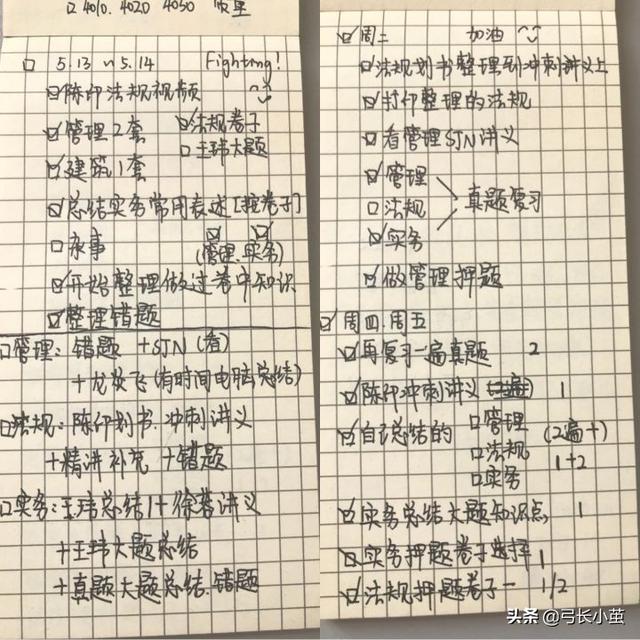 口 4010. 4020 4030
口 5.13 ~ 5.14 Fighting!
☑陈印法规视频
☑管理2套 ☑法规卷子
☑建筑1套 口王玮大题
☑总结实务常用表述[按卷子]
口永事 ☑ ☑ (管理.实务)
☑开始整理做过卷中知识
☑整理错题
口管理: 错题 +SJN (看)
+龙炎飞(有时间电脑总结)
口法规: 陈印划书.冲刺讲义
+精讲补充 +错题
口实务:王玮总结1+徐蓉讲义
+王玮大题总结
+真题大题总结.错题
☑周二 加油
☑法规划书整理到冲刺讲义上
☑打印整理的法规
☑看管理SJN讲义
☑管理
口法规 真题复习
☑实务
☑做管理押题
☑周四.周五
☑再复习一遍真题 2
☑陈印冲刺讲义 1
☑自己总结的 口管理 (2遍+)
口法规 1+2
口实务
☑实务总结大题知识点 1
☑实务押题卷子选择 1
☑法规押题卷子一 1/2
头条 @弓长小茧